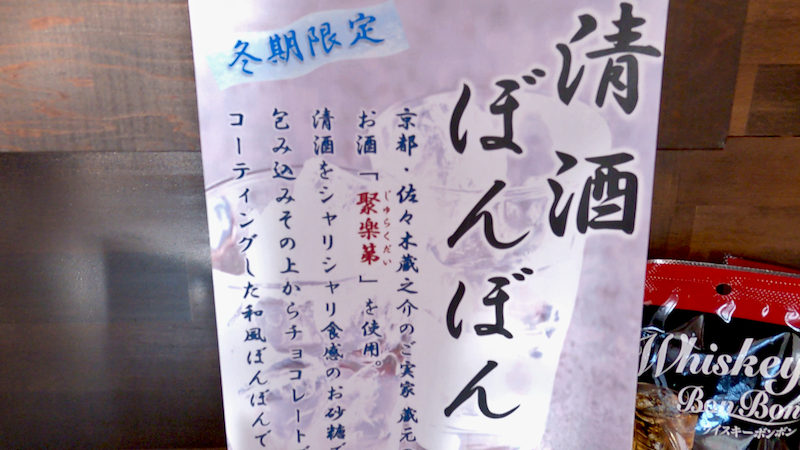 冬期限定
清酒
ぼんぼん
京都・佐々木蔵之介のご実家 蔵元
お酒「聚楽第」を使用。
じゅらくだい
清酒をシャリシャリ食感のお砂糖で
包み込みその上からチョコレート
コーティングした和風ぼんぼんで
Whiskey
BonBon
ウイスキーボンボン